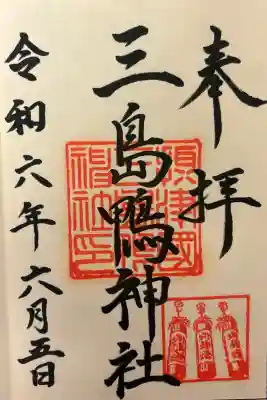 奉拝
三島鴨神社
令和六年六月五日